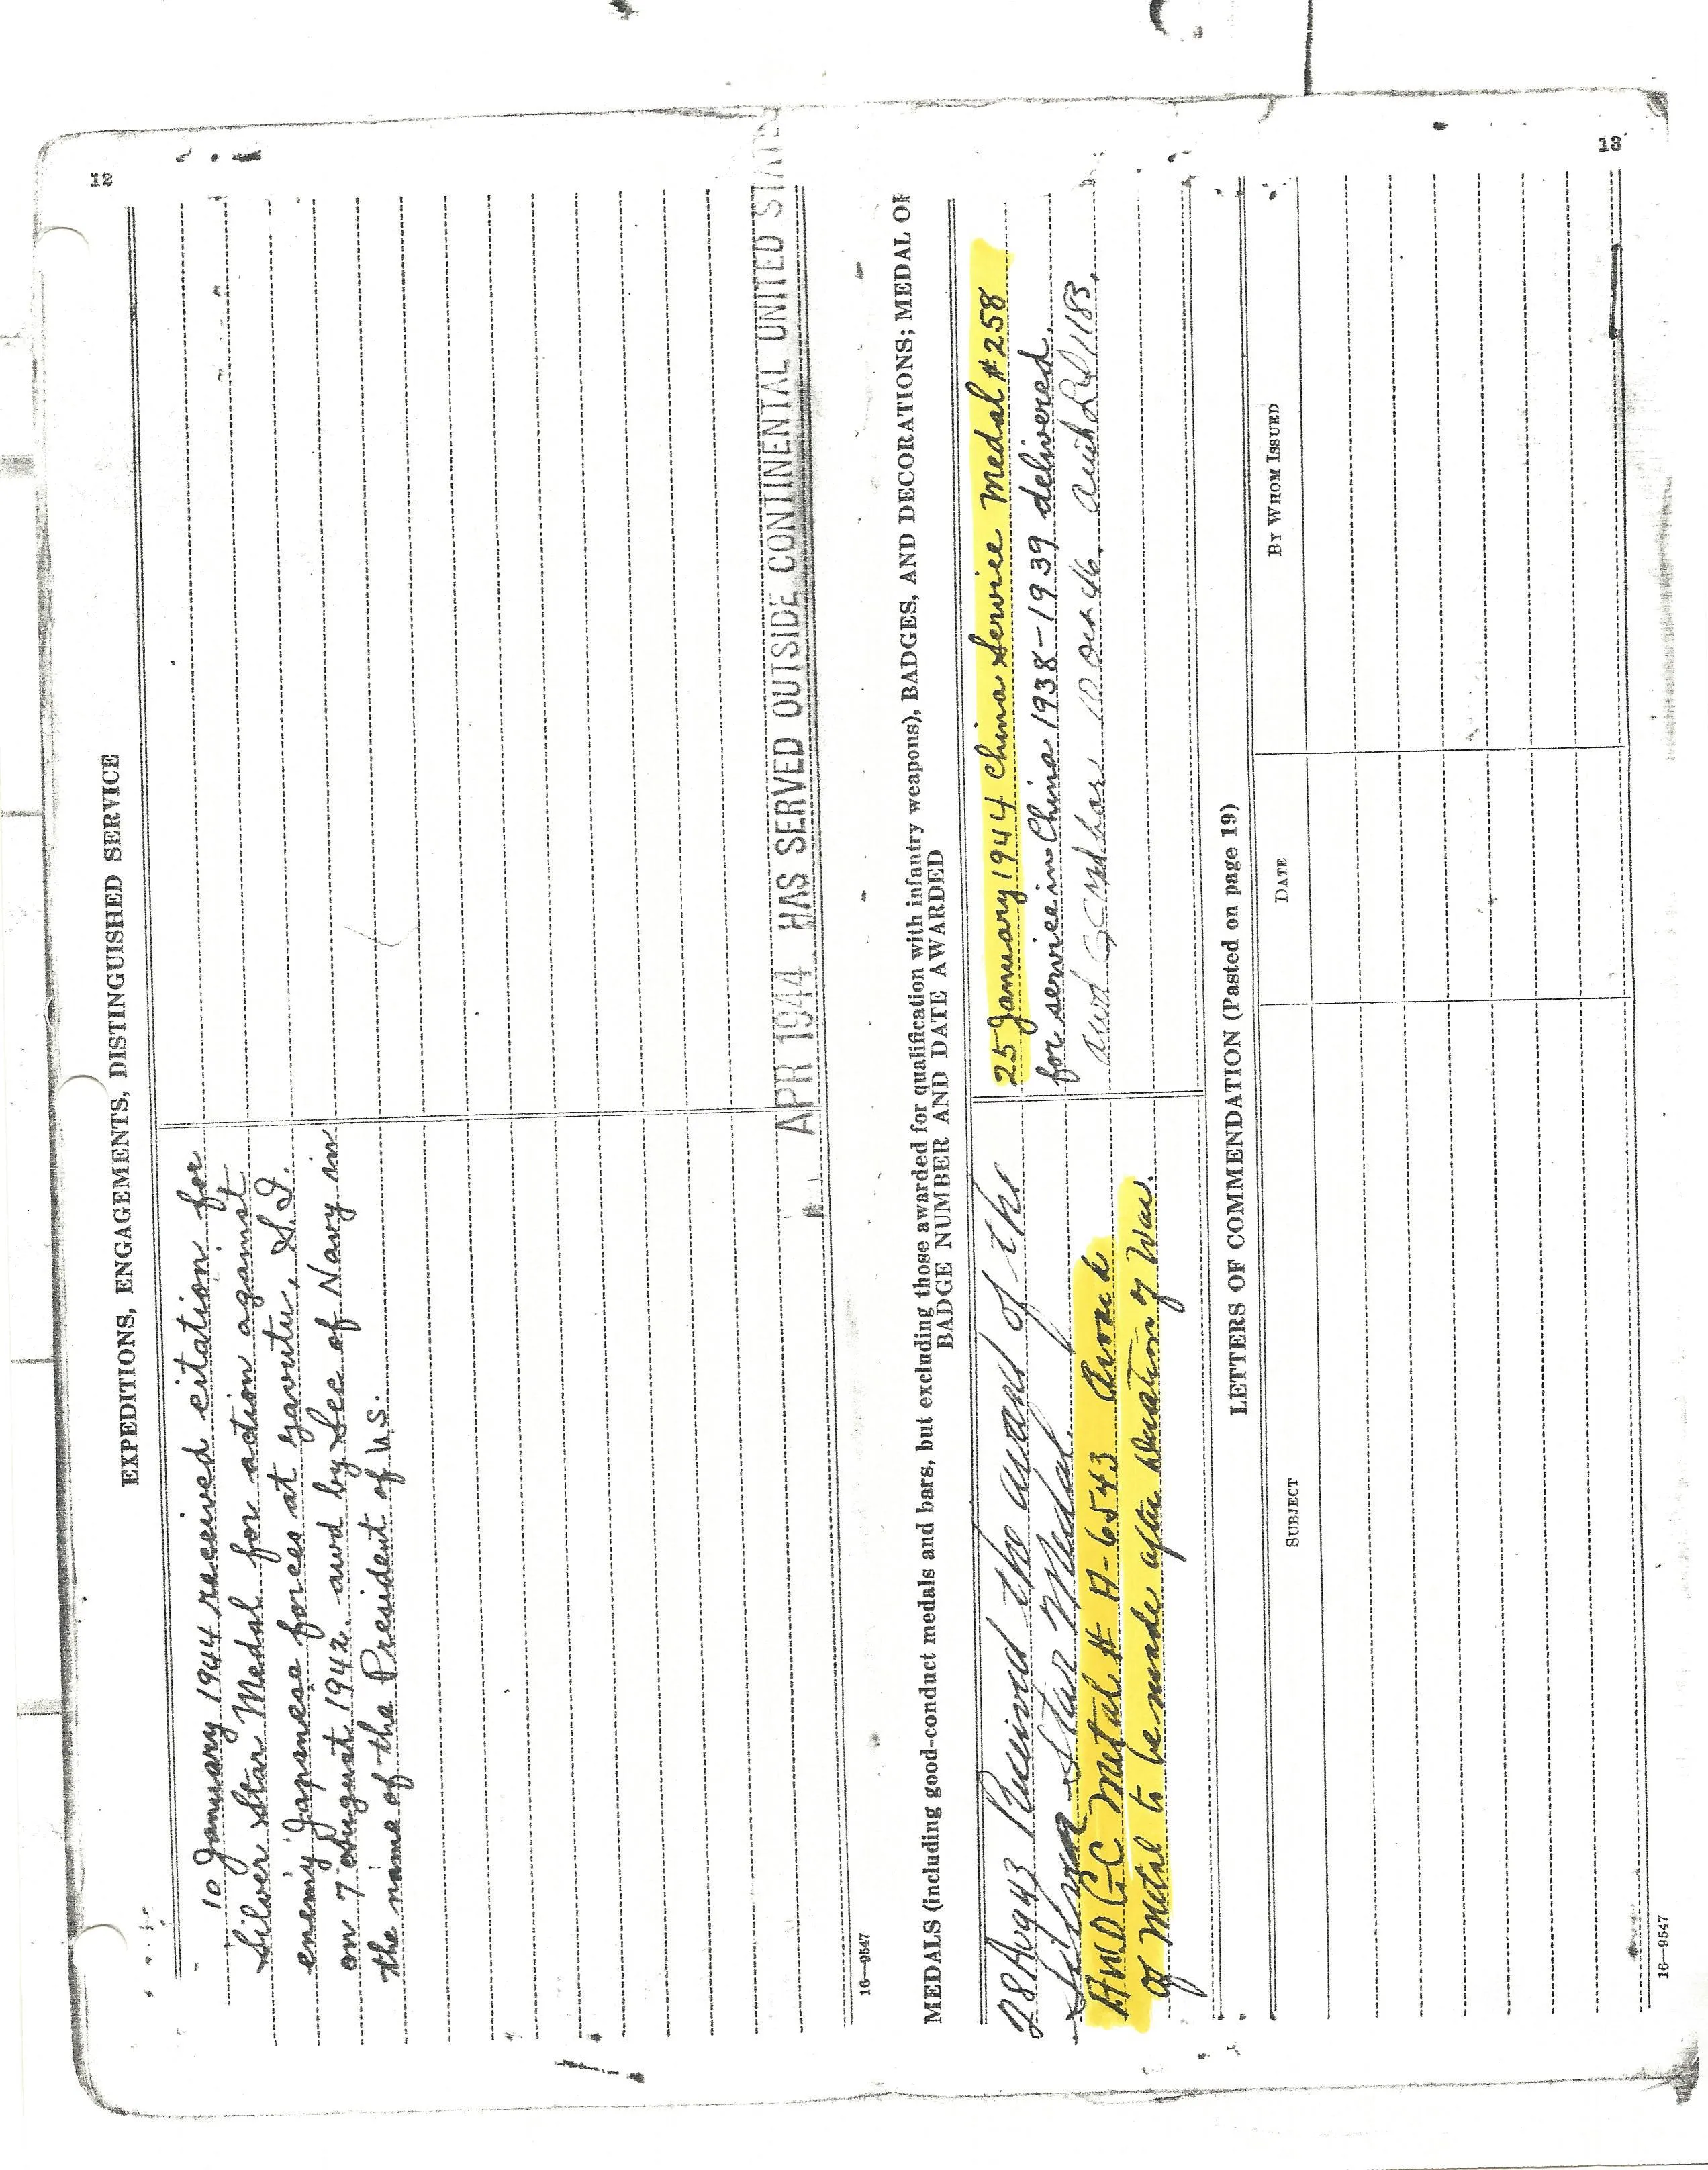 12
EXPEDITIONS, ENGAGEMENTS, DISTINGUISHED SERVICE
10 January 1944 received citation for
Silver Star Medal for action against
enemy Japanese forces at gavutu, S.I.
on 7 August 1942. awd by Sec of Navy in
the name of the President of U.S.
APR 1944 HAS SERVED OUTSIDE CONTINENTAL UNITED STATES
16—9547
MEDALS (including good-conduct medals and bars, but excluding those awarded for qualification with infantry weapons), BADGES, AND DECORATIONS; MEDAL OR
BADGE NUMBER AND DATE AWARDED
28Aug43 Received the award of the
Silver Star Medal.
AWD G-C Metal # A-6543 Award
of Metal to be made after duration of War.
25 January 1944 China Service Medal #258
for service in China 1938-1939 delivered.
awd GCMdbar 10 Oct 46. auth
LETTERS OF COMMENDATION (Pasted on page 19)
SUBJECT
DATE
BY WHOM ISSUED
16—9547
13